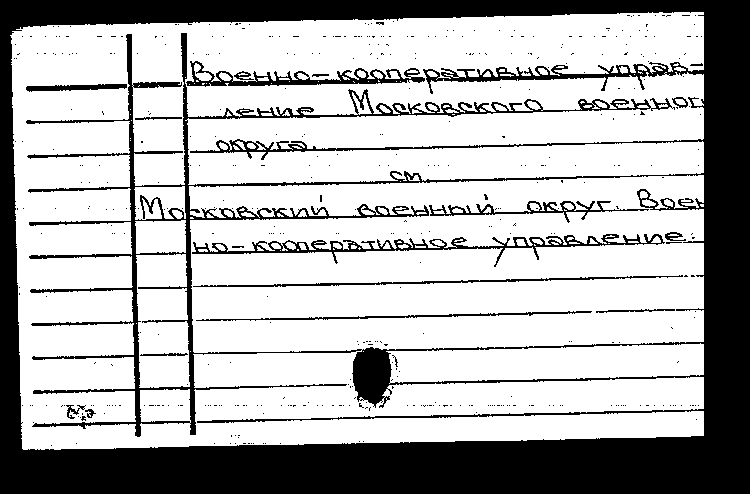 Военно-кооперативное управ-
ление Московского военног
округа.
см.
Московский военный округ. Воен
но-кооперативное управление.